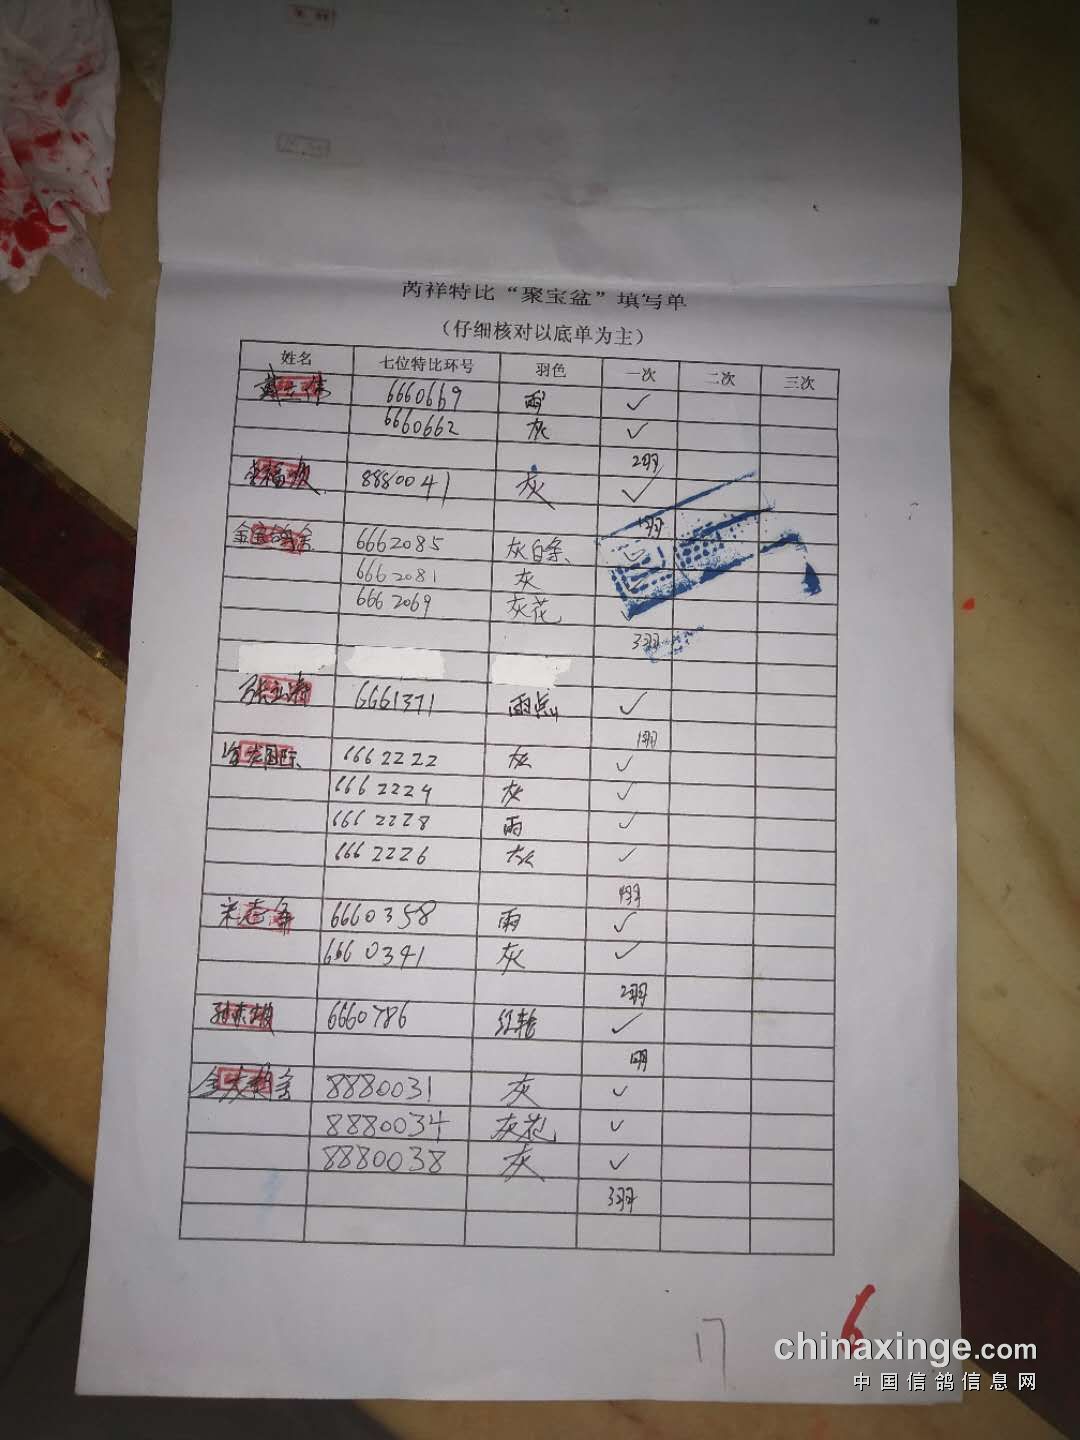 芮祥特比“聚宝盆”填写单
（仔细核对以底单为主）
姓名 七位特比环号 羽色 一次 二次 三次
6660669 雨 ✓
6660662 灰 ✓
2羽
8880041 灰 ✓
1羽
6662085 灰白条
6662081 灰
6662069 灰花
3羽
6661371 雨点 ✓
1羽
6662222 灰 ✓
6662224 灰 ✓
6662228 雨 ✓
6662226 灰 ✓
4羽
6660358 雨 ✓
6660341 灰 ✓
2羽
6660786 红轮 ✓
1羽
8880031 灰 ✓
8880034 灰花 ✓
8880038 灰 ✓
3羽
17
6
chinaxinge.com
中国信鸽信息网